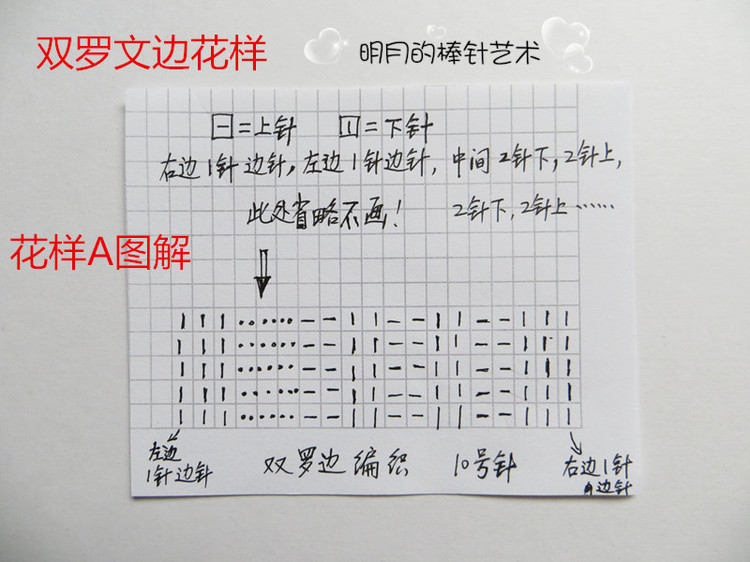 双罗文边花样
明月的棒针艺术
㊀=上针 ▯=下针
右边1针边针,左边1针边针,中间2针下,2针上,
此处省略不画! 2针下,2针上……
花样A图解
左边
1针边针
双罗边编织 10号针
右边1针
边针